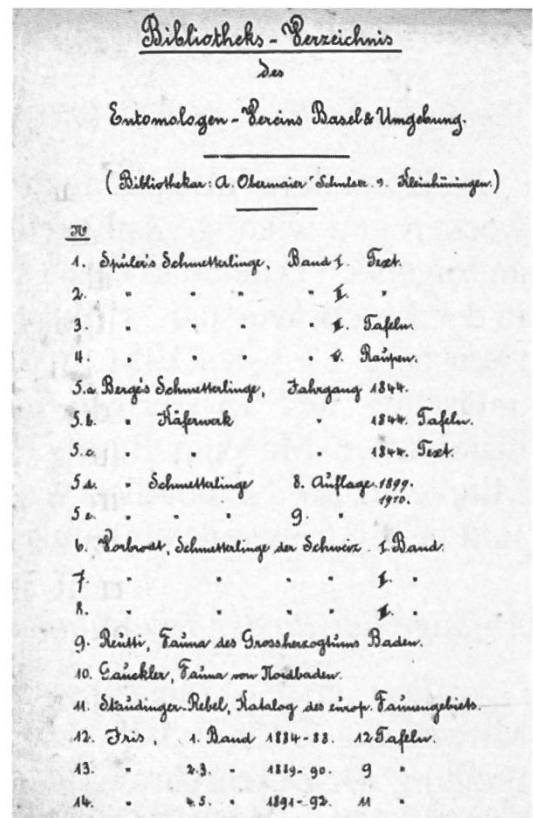 Bibliotheks-Verzeichnis
des
Entomologen-Vereins Basel & Umgebung.
(Bibliothekar: A. Obermaier Kleinhüningen.)
No
1. Spuler's Schmetterlinge, Band I. Text.
2. " " " II.
3. " " " Tafeln.
4. " " " Raupen.
5.a Berge's Schmetterlinge, Jahrgang 1844.
5.b. " Käferwerk " 1844. Tafeln.
5.c. " " " 1844. Text.
5.d. " Schmetterlinge 8. Auflage. 1899
5.e. " " 9. " 1910.
6. Vorbrodt, Schmetterlinge der Schweiz. I. Band.
7. " " " " "
8. " " " " "
9. Reutti, Fauna des Grossherzogtums Baden.
10. Gauckler, Fauna von Nordbaden.
11. Staudinger-Rebel, Katalog des europ. Faunengebiets.
12. Iris, 1. Band 1884-88. 12 Tafeln.
13. " 2.3. " 1889-90. 9 "
14. " 4.5. " 1891-92. 11 "